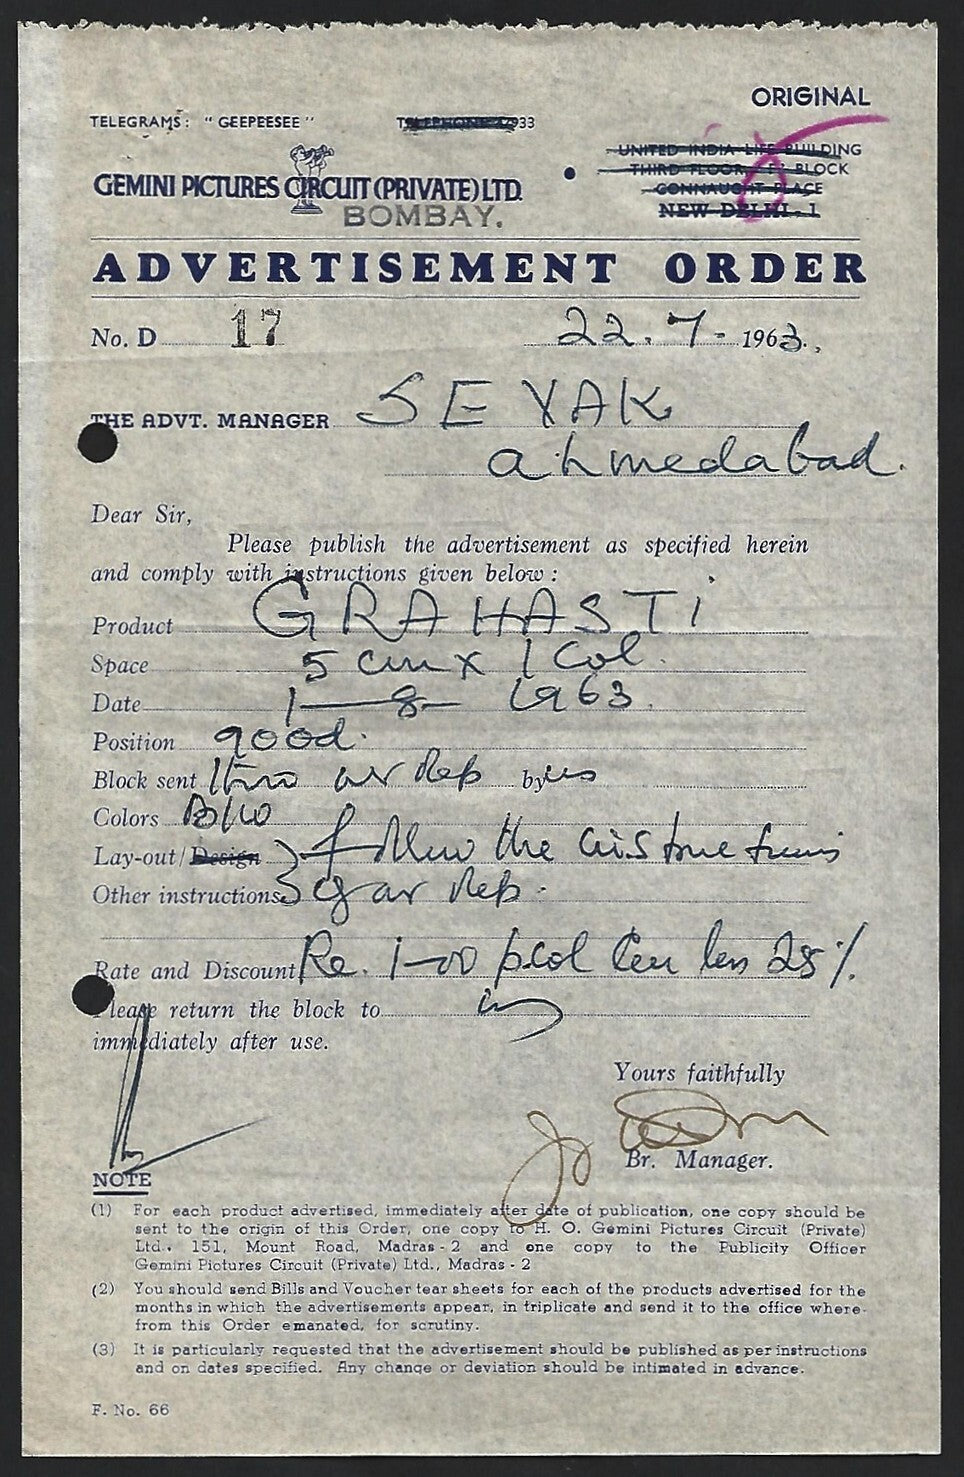 ORIGINAL
TELEGRAMS: "GEEPEESEE" TELEPHONE 47933
UNITED INDIA LIFE BUILDING
THIRD FLOOR, 'F' BLOCK
CONNAUGHT PLACE
NEW DELHI - 1
GEMINI PICTURES CIRCUIT (PRIVATE) LTD.
BOMBAY.
ADVERTISEMENT ORDER
No. D 17 22.7-1963.,
THE ADVT. MANAGER SEVAK
ahmedabad.
Dear Sir,
Please publish the advertisement as specified herein
and comply with instructions given below :
Product GRAHASTI
Space 5 cm x 1 Col.
Date 1-8-1963.
Position good.
Block sent thro our Rep by us
Colors B/W
Lay-out/Design follow the instructions
Other instructions of our Rep.
Rate and Discount Re. 1-00 p.col Cm less 25%.
Please return the block to us
immediately after use.
Yours faithfully
Br. Manager.
NOTE
(1) For each product advertised, immediately after date of publication, one copy should be
sent to the origin of this Order, one copy to H. O. Gemini Pictures Circuit (Private)
Ltd. 151, Mount Road, Madras - 2 and one copy to the Publicity Officer
Gemini Pictures Circuit (Private) Ltd., Madras - 2
(2) You should send Bills and Voucher tear sheets for each of the products advertised for the
months in which the advertisements appear, in triplicate and send it to the office where-
from this Order emanated, for scrutiny.
(3) It is particularly requested that the advertisement should be published as per instructions
and on dates specified. Any change or deviation should be intimated in advance.
F. No. 66